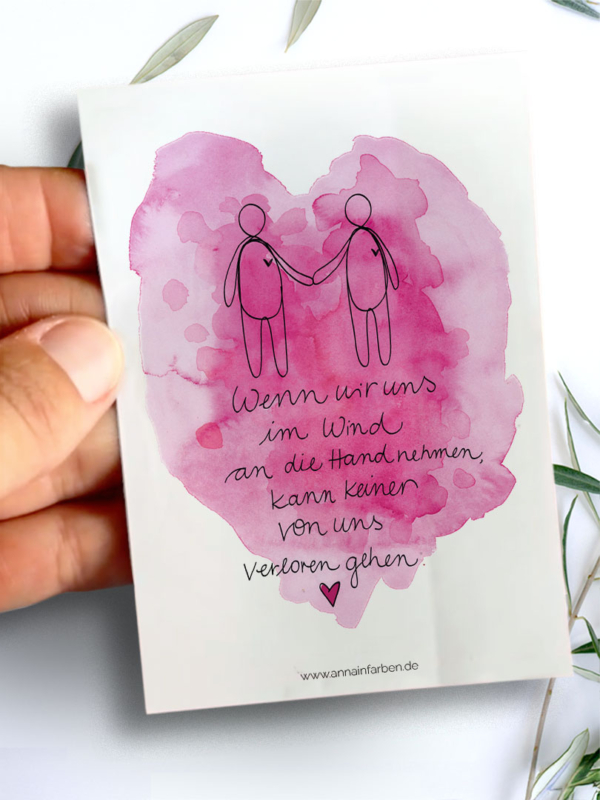 Wenn wir uns
im Wind
an die Hand nehmen,
kann keiner
von uns
verloren gehen.
www.annainfarben.de